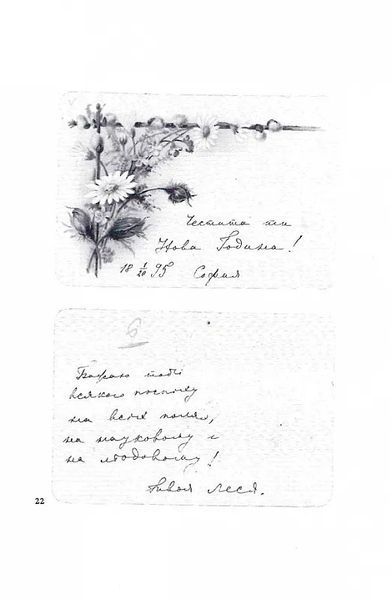 Честита ти
Нова Година!
18 1/20 95 София
Бажаю тобі
всякого поспіху
на всіх полях,
на науковому і
на людовому!
Твоя Леся.
22